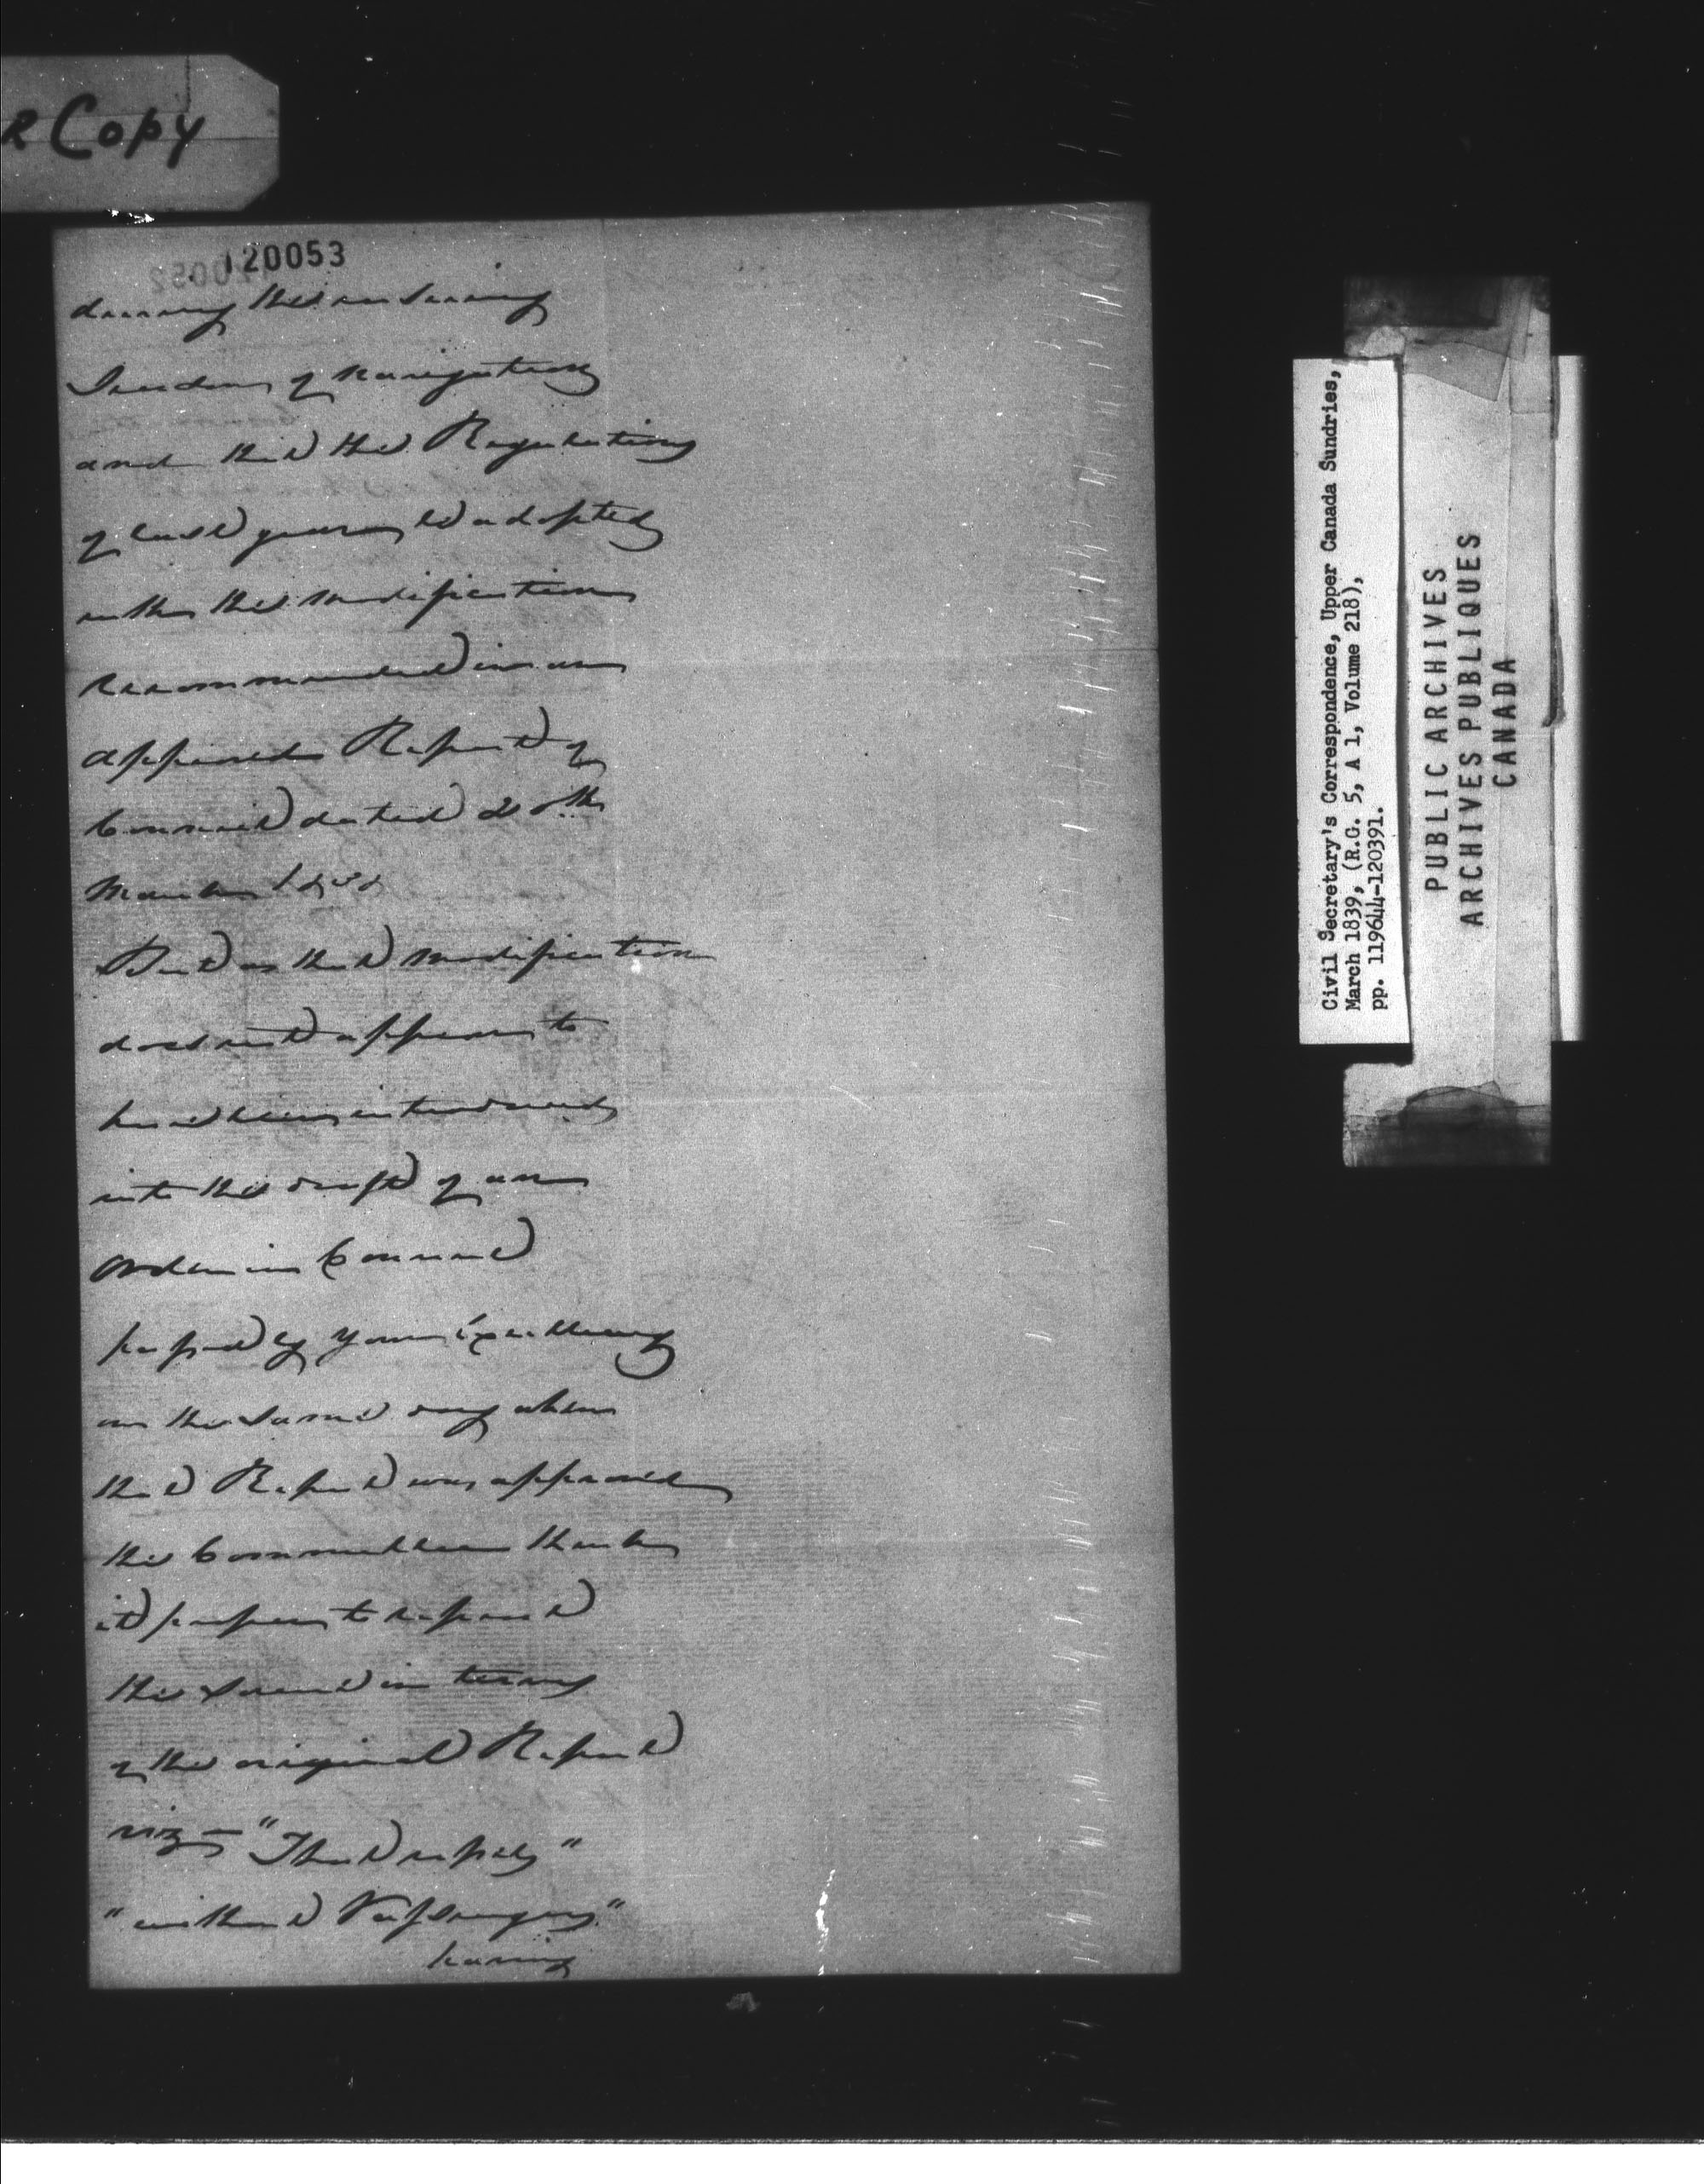 R Copy
120053
during the ensuing
Season of Navigation
and that the Regulations
of last year be adopted
with the modification
recommended in an
approved Report of
Council dated 20th
March 1838
But as that modification
does not appear to
have been introduced
into the draft of an
Order in Council
passed by Your Excellency
on the same day when
that Report was approved
the Committee thinks
it proper to repeat
the same in terms
of the original Report
viz - "That
"without Passengers"
having
Civil Secretary's Correspondence, Upper Canada Sundries,
March 1839, (R.G. 5, A 1, Volume 218),
pp. 119644-120391.
PUBLIC ARCHIVES
ARCHIVES PUBLIQUES
CANADA